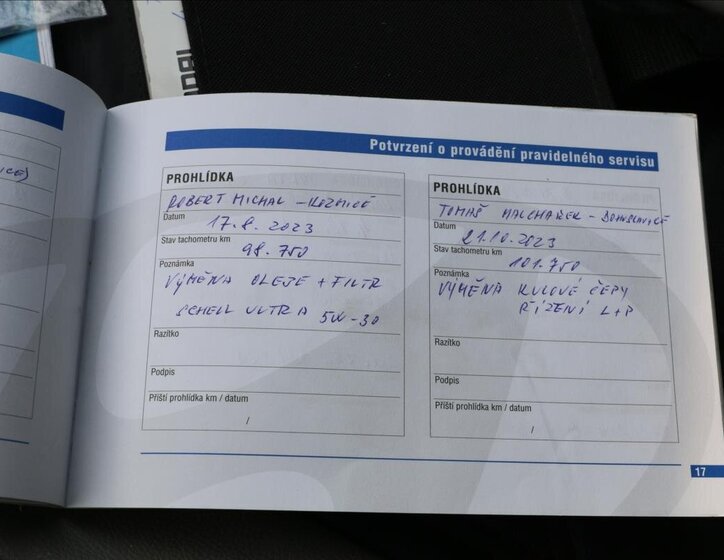 Potvrzení o provádění pravidelného servisu
PROHLÍDKA
ROBERT MICHAL - KOZMICE
Datum
17.8.2023
Stav tachometru km
98.750
Poznámka
VÝMĚNA OLEJE + FILTR
SCHELL ULTRA 5W-30
Razítko
Podpis
Příští prohlídka km / datum
/
PROHLÍDKA
TOMÁŠ MALCHAREK - BOHUSLAVICE
Datum
21.10.2023
Stav tachometru km
101.750
Poznámka
VÝMĚNA KULOVÉ ČEPY
ŘÍZENÍ L+P
Razítko
Podpis
Příští prohlídka km / datum
/
17